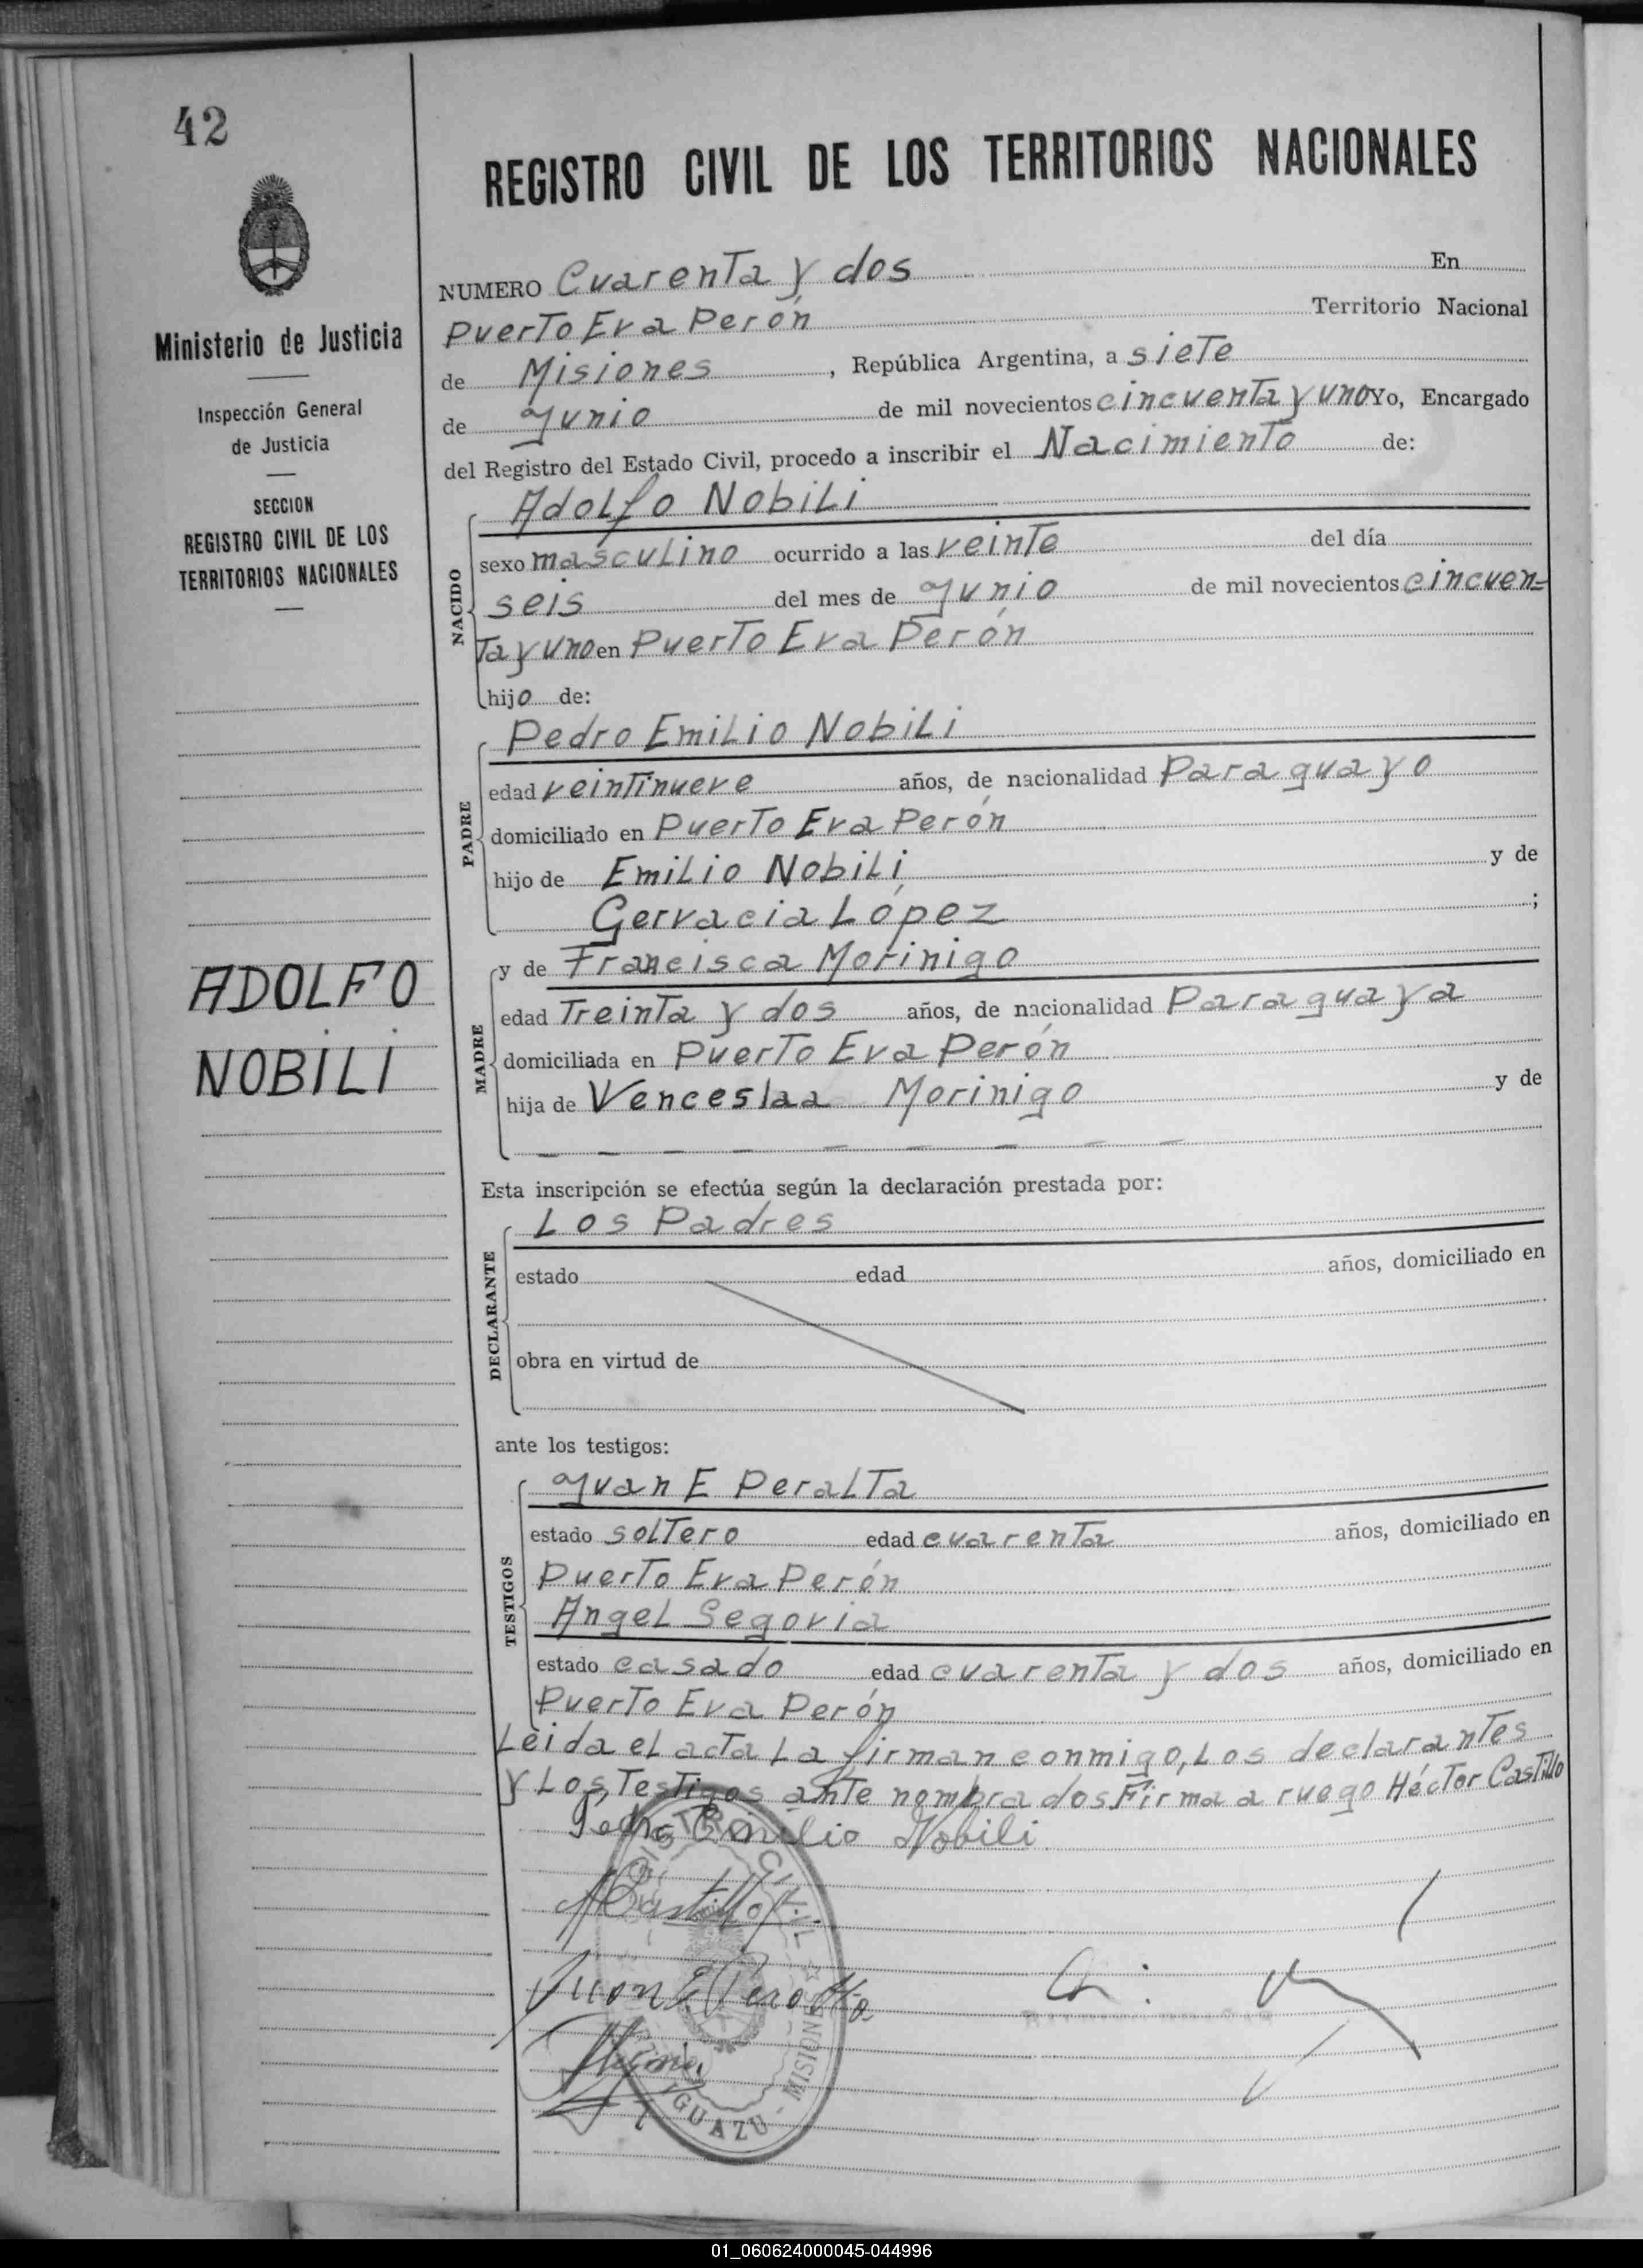 42
Ministerio de Justicia
Inspección General
de Justicia
SECCION
REGISTRO CIVIL DE LOS
TERRITORIOS NACIONALES
ADOLFO
NOBILI
REGISTRO CIVIL DE LOS TERRITORIOS NACIONALES
NUMERO Cuarenta y dos En
Puerto Eva Perón Territorio Nacional
de Misiones, República Argentina, a siete
de Junio de mil novecientos cincuenta y uno Yo, Encargado
del Registro del Estado Civil, procedo a inscribir el Nacimiento de:
NACIDO
Adolfo Nobili
sexo masculino ocurrido a las veinte del día
seis del mes de Junio de mil novecientos cincuen=
ta y uno en Puerto Eva Perón
hijo de:
PADRE
Pedro Emilio Nobili
edad veintinueve años, de nacionalidad Paraguayo
domiciliado en Puerto Eva Perón
hijo de Emilio Nobili y de
Gervacia López ;
MADRE
y de Francisca Morinigo
edad Treinta y dos años, de nacionalidad Paraguaya
domiciliada en Puerto Eva Perón
hija de Venceslaa Morinigo y de
Esta inscripción se efectúa según la declaración prestada por:
DECLARANTE
Los Padres
estado edad años, domiciliado en
obra en virtud de
ante los testigos:
TESTIGOS
Juan E Peralta
estado soltero edad cuarenta años, domiciliado en
Puerto Eva Perón
Angel Segovia
estado casado edad cuarenta y dos años, domiciliado en
Puerto Eva Perón
Leida el acta la firman conmigo, los declarantes
y los, testigos ante nombrados Firma a ruego Héctor Castillo
Pedro Emilio Nobili
HCastillo
Juan E Peralta
REGISTRO CIVIL
IGUAZU - MISIONES
01_060624000045-044996